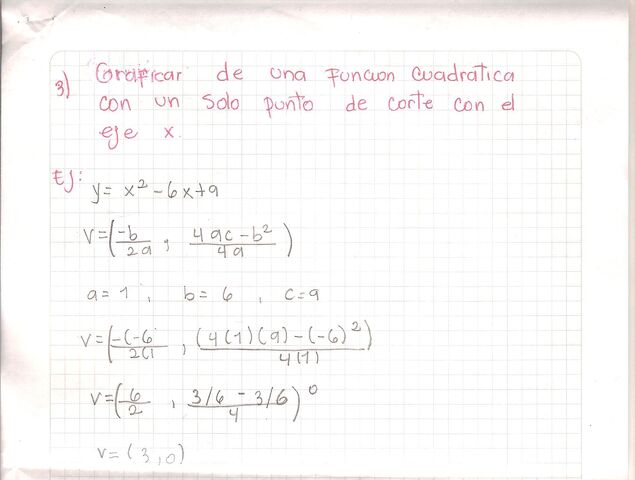 3) Graficar de una funcion cuadratica
con un solo punto de corte con el
eje x.
Ej:
y = x² - 6x + 9
V = (-b/2a , 4ac - b²/4a)
a = 1 , b = 6 , c = 9
V = (-(-6/2(1 , (4(1)(9) - (-6)²)/4(1)
V = (6/2 , 36 - 36/4)⁰
V = (3, 0)